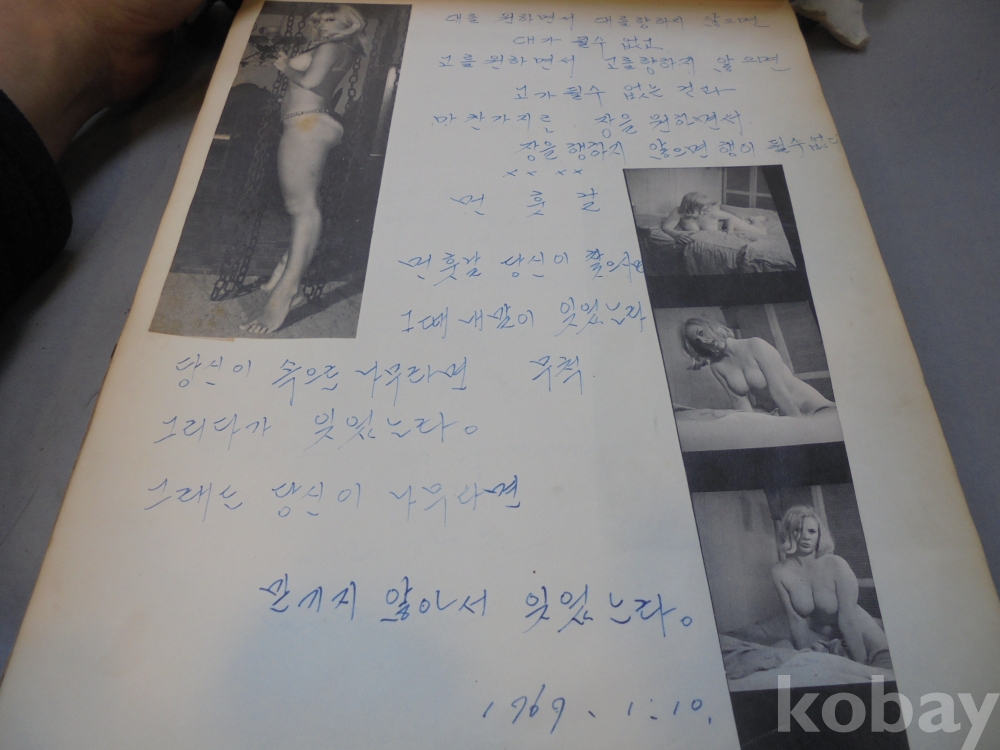 대를 원하면서 대를향하지 않으면
대가 될수 없고
고를 원하면서 고를향하지 않으면
고가 될수 없는 결과
마찬가지로 장을 원하면서
장을 행하지 않으면 행이 될수없다
×× ××
먼 훗날
먼훗날 당신이 찾으시면
그때 내말이 잊었노라
당신이 속으로 나무라면 무척
그리다가 잊었노라。
그래도 당신이 나무라면
믿기지 않아서 잊었노라。
1969. 1. 10.
kobay